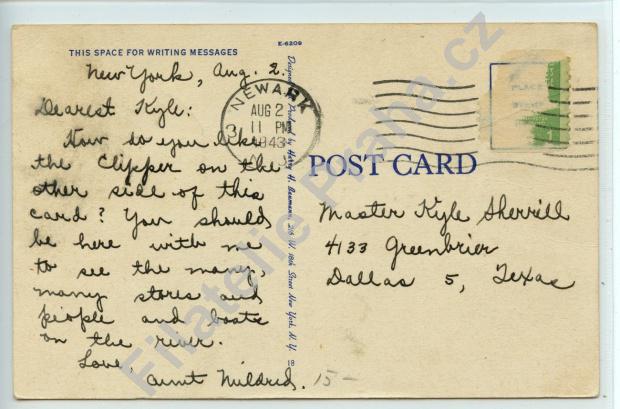 E-6209
THIS SPACE FOR WRITING MESSAGES
New York, Aug. 2.
Dearest Kyle:
How do you like
the Clipper on the
other side of this
card? You should
be here with me
to see the many,
many stores and
people and boats
on the river.
Love,
Aunt Mildred.
15-
18
Designed & Produced by Harry H. Baumann, 216 W. 18th Street New York, N. Y.
NEWARK
AUG 2
11 PM
1943
3
PLACE
POST CARD
Master Kyle Sherrill
4133 Greenbrier
Dallas 5, Texas
Filatelie Praha.cz